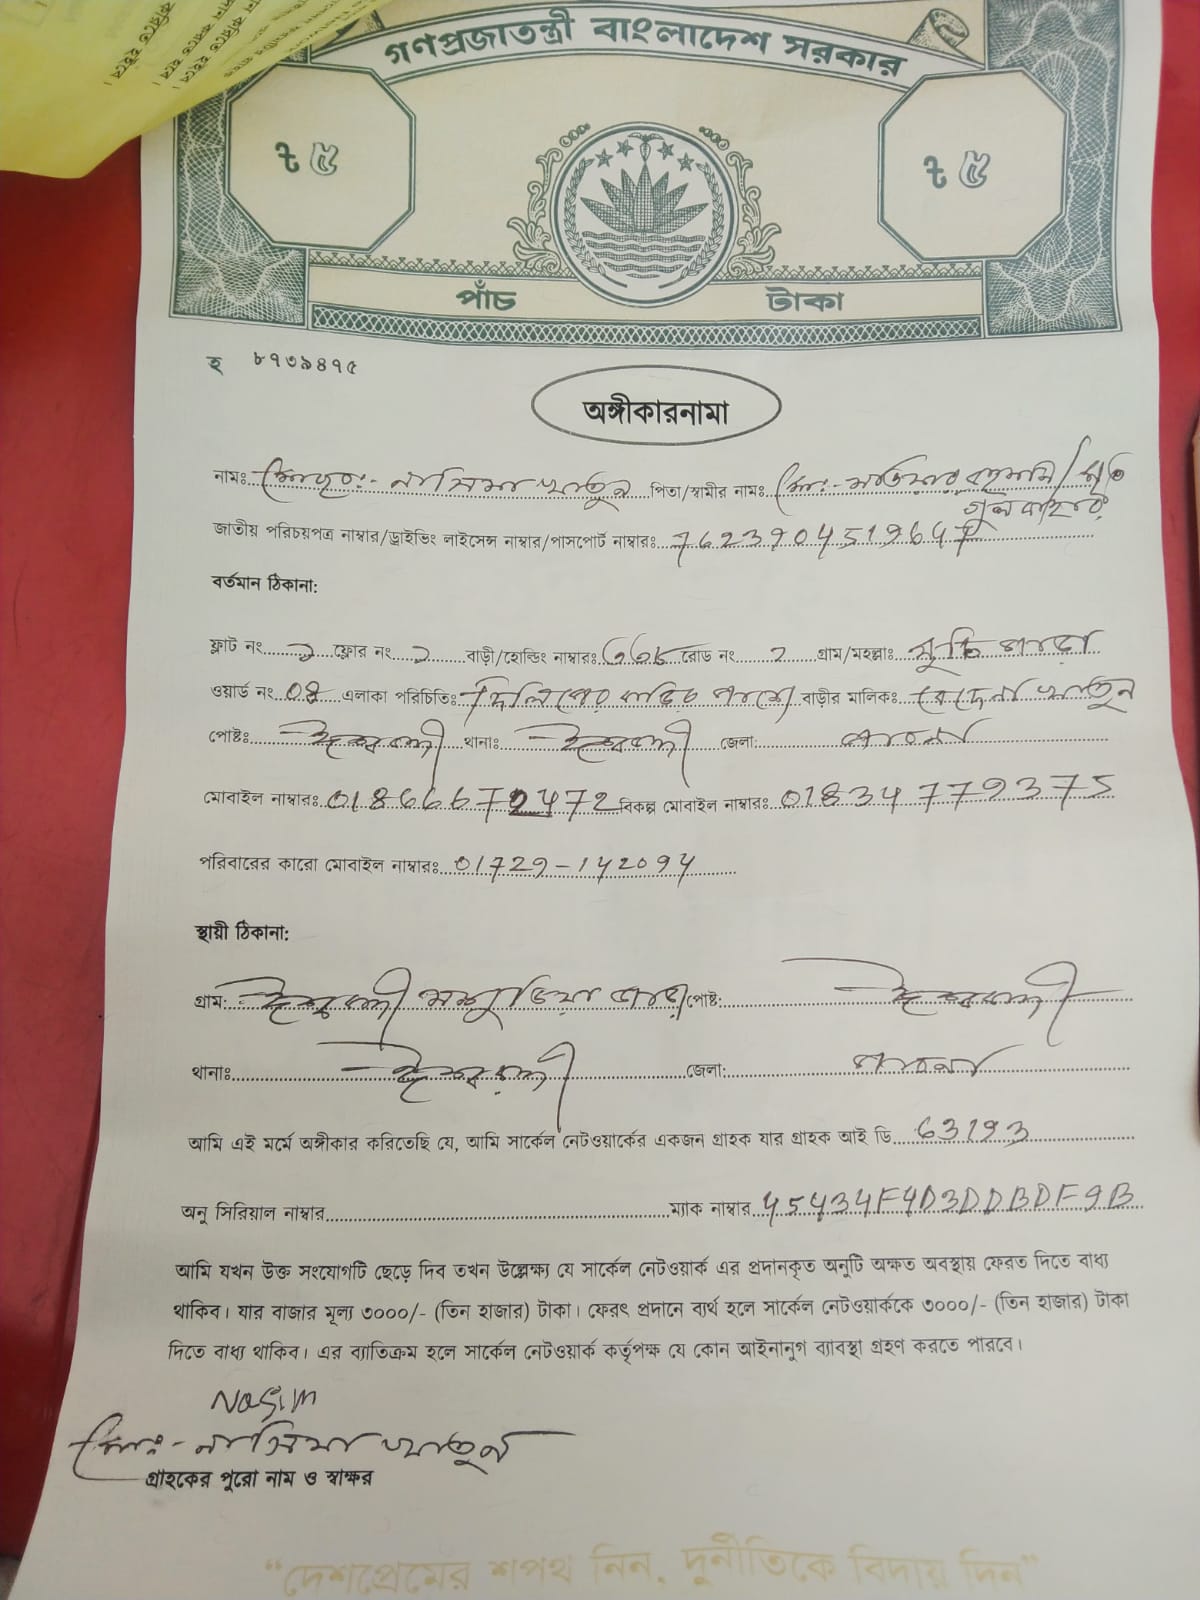 গণপ্রজাতন্ত্রী বাংলাদেশ সরকার
৳ ৫ ৳ ৫
পাঁচ টাকা
হ ৮৭৩৯৪৭৫
অঙ্গীকারনামা
নামঃ মোছাঃ- নাসিমা খাতুন পিতা/স্বামীর নামঃ মোঃ- মতিয়ার রহমান/
জাতীয় পরিচয়পত্র নাম্বার/ড্রাইভিং লাইসেন্স নাম্বার/পাসপোর্ট নাম্বারঃ
বর্তমান ঠিকানা:
ফ্লাট নং ফ্লোর নং বাড়ী/হোল্ডিং নাম্বারঃ রোড নং গ্রাম/মহল্লাঃ
ওয়ার্ড নং এলাকা পরিচিতিঃ বাড়ীর মালিকঃ খাতুন
পোষ্টঃ ঈশ্বরদী থানাঃ ঈশ্বরদী জেলা: পাবনা
মোবাইল নাম্বারঃ বিকল্প মোবাইল নাম্বারঃ 01834779375
পরিবারের কারো মোবাইল নাম্বারঃ 01729-142094
স্থায়ী ঠিকানা:
গ্রাম: ঈশ্বরদী পোষ্ট: ঈশ্বরদী
থানাঃ ঈশ্বরদী জেলা: পাবনা
আমি এই মর্মে অঙ্গীকার করিতেছি যে, আমি সার্কেল নেটওয়ার্কের একজন গ্রাহক যার গ্রাহক আই ডি 63193
অনু সিরিয়াল নাম্বার ম্যাক নাম্বার 45434F4D3DDBDF9B
আমি যখন উক্ত সংযোগটি ছেড়ে দিব তখন উল্লেক্ষ্য যে সার্কেল নেটওয়ার্ক এর প্রদানকৃত অনুটি অক্ষত অবস্থায় ফেরত দিতে বাধ্য
থাকিব। যার বাজার মূল্য ৩০০০/- (তিন হাজার) টাকা। ফেরৎ প্রদানে ব্যর্থ হলে সার্কেল নেটওয়ার্ককে ৩০০০/- (তিন হাজার) টাকা
দিতে বাধ্য থাকিব। এর ব্যাতিক্রম হলে সার্কেল নেটওয়ার্ক কর্তৃপক্ষ যে কোন আইনানুগ ব্যাবস্থা গ্রহণ করতে পারবে।
Nasim
মোছাঃ- নাসিমা খাতুন
গ্রাহকের পুরো নাম ও স্বাক্ষর
“দেশপ্রেমের শপথ নিন, দুর্নীতিকে বিদায় দিন”